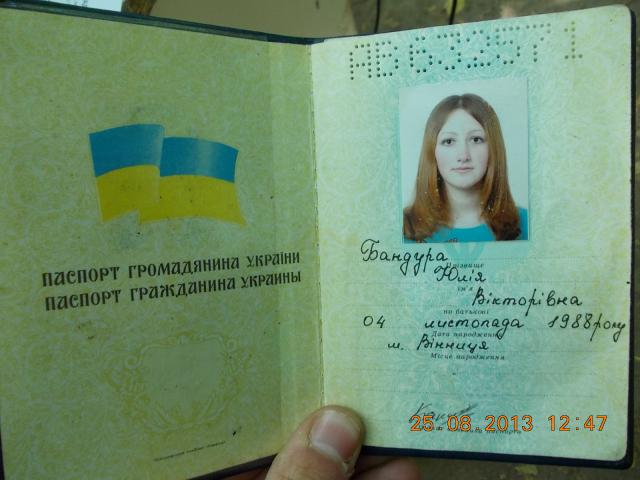 ПАСПОРТ ГРОМАДЯНИНА УКРАЇНИ
ПАСПОРТ ГРАЖДАНИНА УКРАИНЫ
АВ 632571
Бандура
Прізвище
Юлія
ім'я
Вікторівна
по батькові
04 листопада 1988 року
Дата народження
м. Вінниця
Місце народження
25 08 2013 12:47